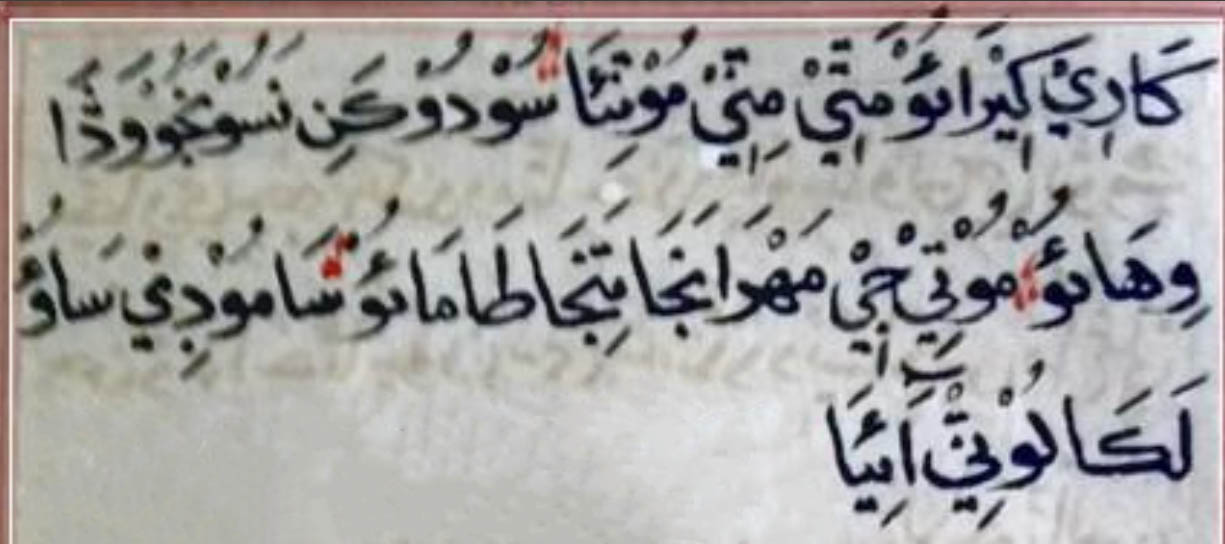 كَارِيْ كِيْرَائُوْ مَتِيْ مِتِيْ مُوْتِئَا سُوْدُوْكَنِ نَسُوْنجَوُوْدَّا
وِهَائُوْ مُوْتِيْ جِيْ مَهْرَانجَا تِنجَا طَامَائُوْ سَامُوْدِيْ سَاوُ
لَكَائُوْتِيْ اَئِيَا